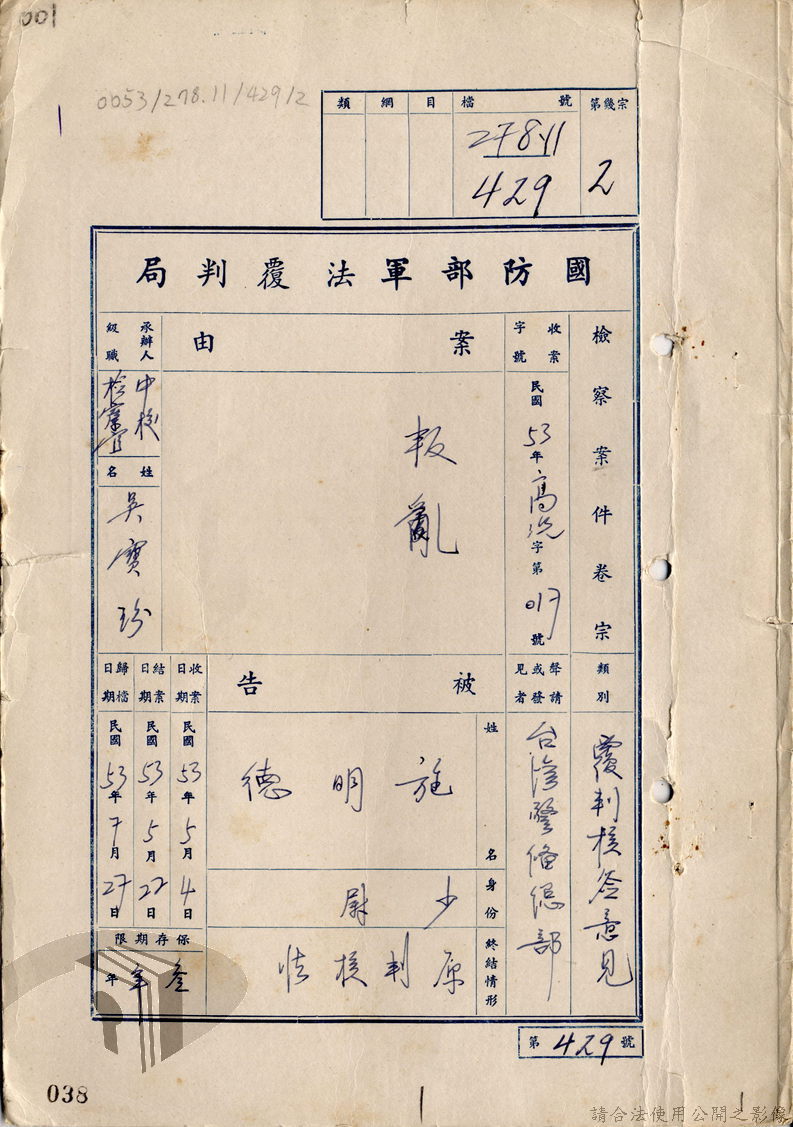 001
0053/278.11/429/2
類 綱 目 檔號 第幾宗
278.11
429 2
國防部軍法覆判局
檢察案件卷宗
收案字號
民國53年高 字第017號
案由
叛亂
承辦人級職
中校檢察官
姓名
吳寶珍
類別
覆判核簽意見
聲請或發見者
台灣警備總部
被告
姓名
施明德
身份
少尉
終結情形
原判核
收案日期
民國53年5月4日
結案日期
民國53年5月22日
歸檔日期
民國53年7月27日
保存期限
年
第429號
038
請合法使用公開之影像